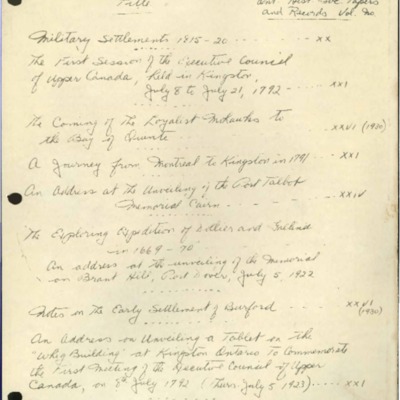 Title
Ont. Hist. Soc. Papers
and Records Vol. No.
Military Settlements 1815-20 ... xx
The First Session of the Executive Council
of Upper Canada, held in Kingston,
July 8 to July 21, 1792 --- xxi
The Coming of the Loyalist Mohawks to
the Bay of Quinte ... xxvi (1930)
A Journey from Montreal to Kingston in 1791 ... xxi
An Address at the Unveiling of the Port Talbot
Memorial Cairn ... xxiv
The Exploring Expedition of Dollier and Galinée
in 1669-70
An address at the unveiling of the Memorial
on Brant Hill, Port Dover, July 5 1922
Notes in the Early Settlement of Burford ... xxvi
(1930)
An Address on Unveiling a Tablet in the
"Whig Building" at Kingston Ontario to Commemorate
the First Meeting of the Executive Council of Upper
Canada, on 8th July 1792 (Thurs. July 5 1923) ... xxi